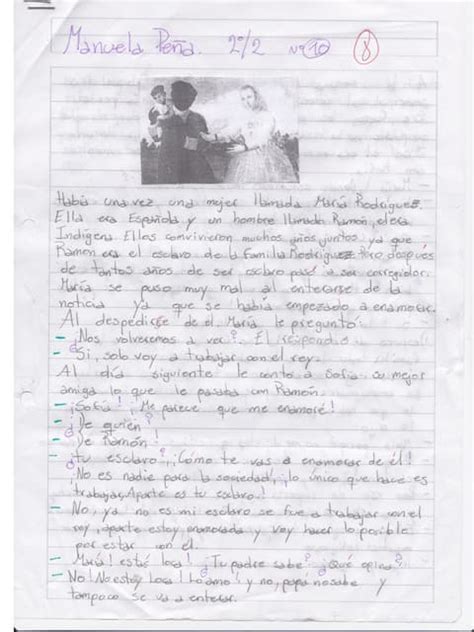 Manuela Peña. 2º/2 Nº10 8
Había una vez una mujer llamada María Rodriguez.
Ella era Española y un hombre llamado Ramón, el era
Indígena. Ellos convivieron muchos años juntos ya que
Ramon era el esclavo de la Familia Rodriguez pero después
de tantos años de ser esclavo pasó a ser corregidor.
María se puso muy mal al enterarse de la
noticia ya que se había empezado a enamorar.
Al despedirse de él María le preguntó:
- ¿Nos volveremos a ver?. El respondió
- Si, solo voy a trabajar con el rey.
Al día siguiente le conto a Sofía su mejor
amiga lo que le pasaba con Ramón.
- ¡Sofía! ¡Me parece que me enamoré!
- ¿De quien?
- ¡De Ramón!
- ¿tu esclavo?, ¡Cómo te vas a enamorar de él!
¡No es nadie para la sociedad, ¡lo único que hace es
trabajar, Aparte es tu esclavo!
- No, ya no es mi esclavo se fue a trabajar con el
rey, aparte estoy enamorada y voy hacer lo posible
por estar con él.
- María! estás loca! ¿Tu padre sabe? ¿Qué opina?
- No! No estoy loca! Lo amo! y no, papa no sabe y
tampoco se va a enterar.